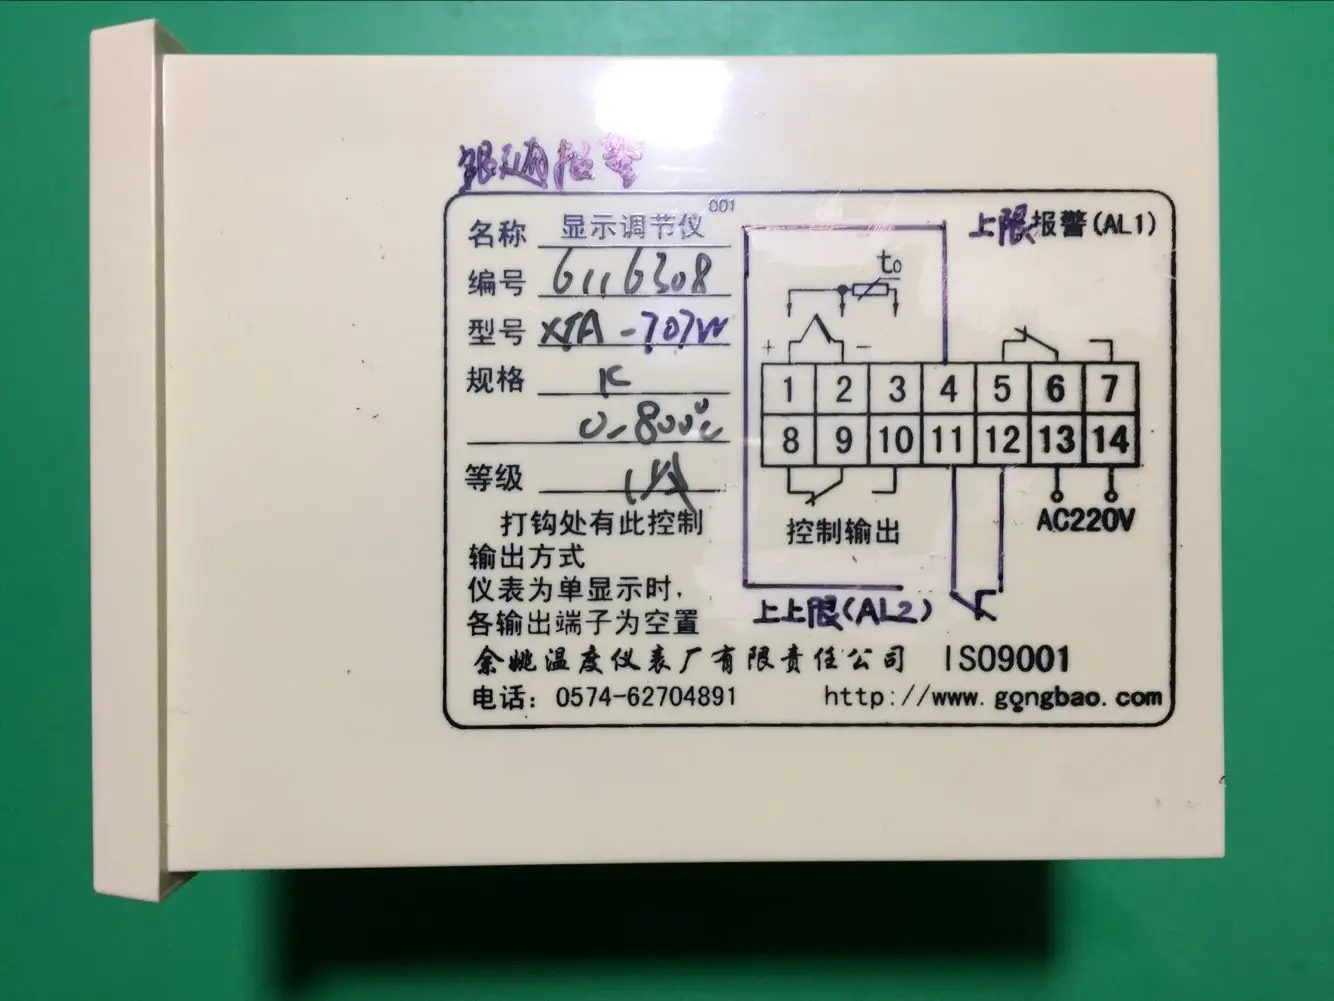 报警
001
名称 显示调节仪
编号 6116308
型号 XTA-707W
规格 K
0-800℃
等级 1级
打钩处有此控制
输出方式
仪表为单显示时,
各输出端子为空置
上限报警(AL1)
t₀
+ -
1 2 3 4 5 6 7
8 9 10 11 12 13 14
控制输出
AC220V
上上限(AL2)
余姚温度仪表厂有限责任公司 ISO9001
电话: 0574-62704891 http://www.gongbao.com